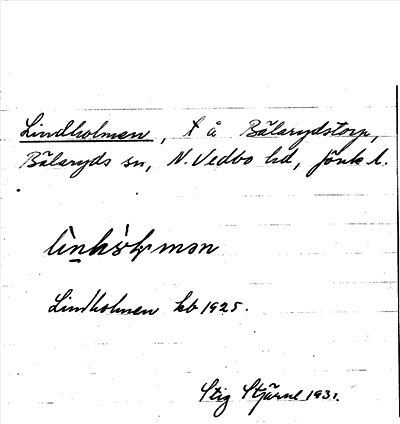 Lindholmen, t å Bälarydstorp,
Bälaryds sn, N. Vedbo hd, Jönk l.
Lindholmen kb 1925.
Stig Stjärne 1931.